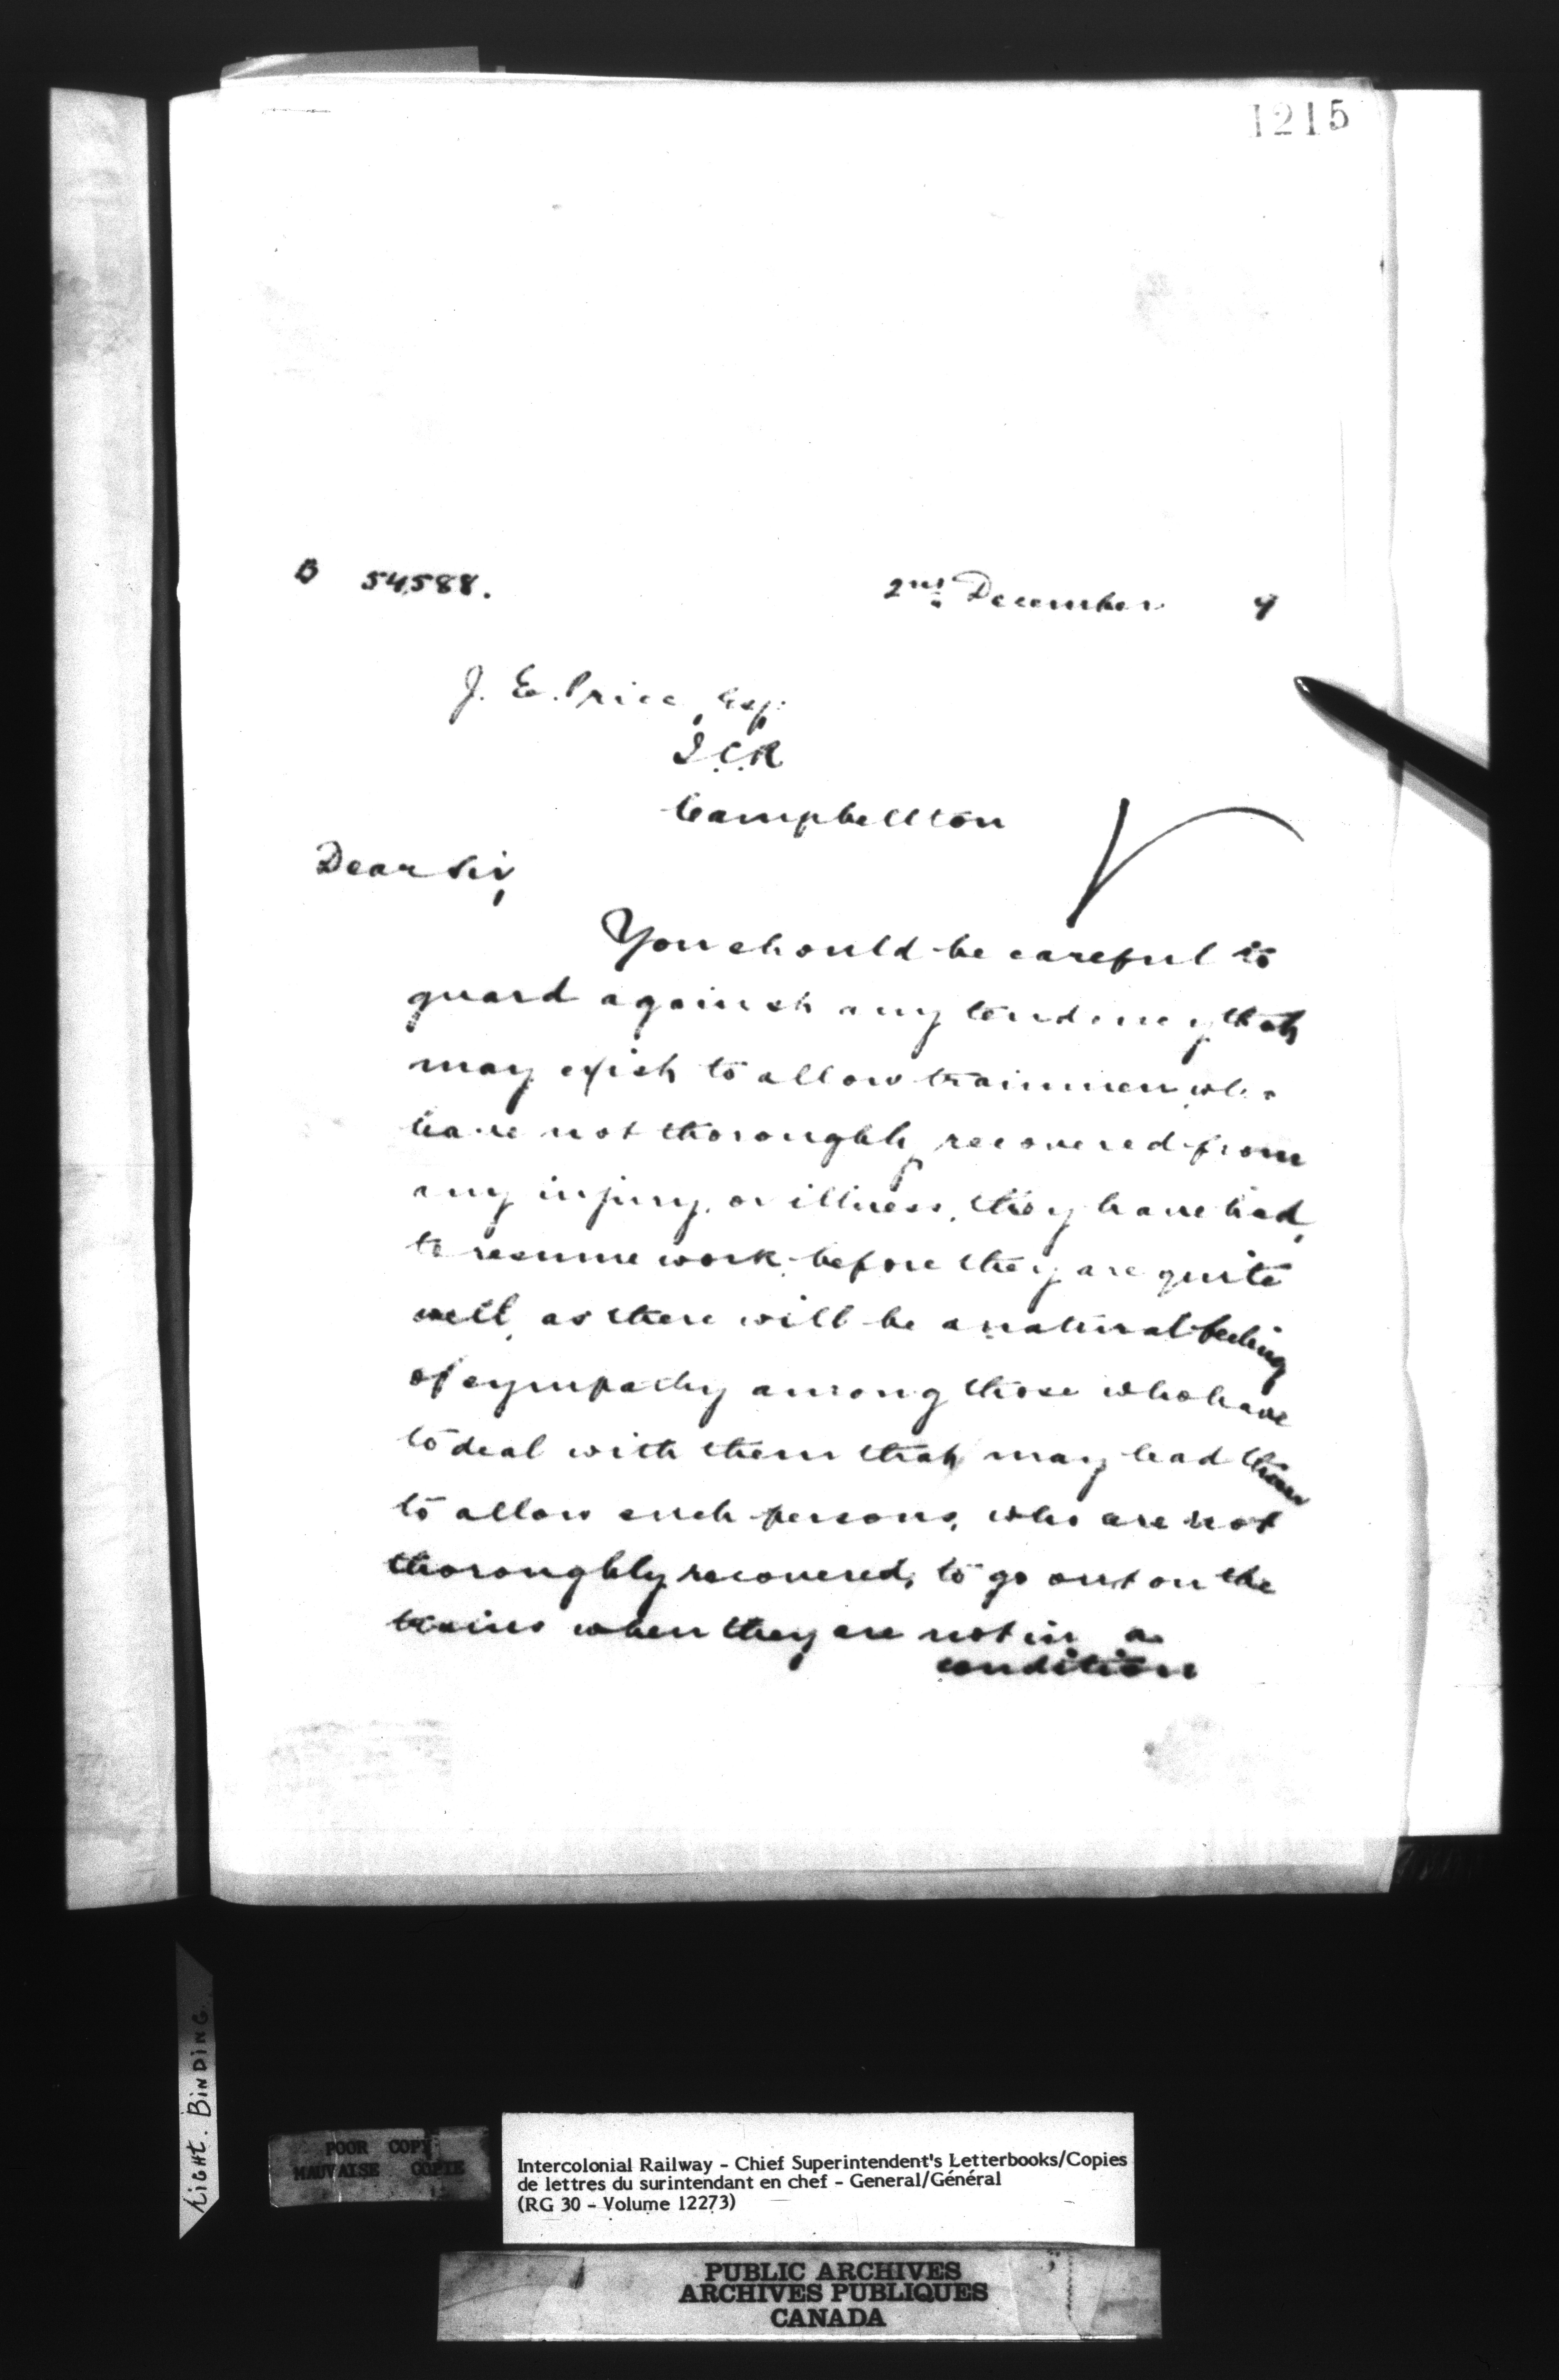 1215
B 54588.
2nd December 9
J. E. Price, Esq:
I.C.R
Campbellton
Dear Sir,
You should be careful to
guard against any tendency that
may exist to allow trainmen who
have not thoroughly recovered from
any injury, or illness, they have had,
to resume work before they are quite
well, as there will be a natural feeling
of sympathy among those who have
to deal with them that may lead them
to allow such persons, who are not
thoroughly recovered, to go out on the
trains when they are not in a
condition
Light. BINDING
POOR COPY
MAUVAISE COPIE
Intercolonial Railway - Chief Superintendent's Letterbooks/Copies
de lettres du surintendant en chef - General/Général
(RG 30 - Volume 12273)
PUBLIC ARCHIVES
ARCHIVES PUBLIQUES
CANADA